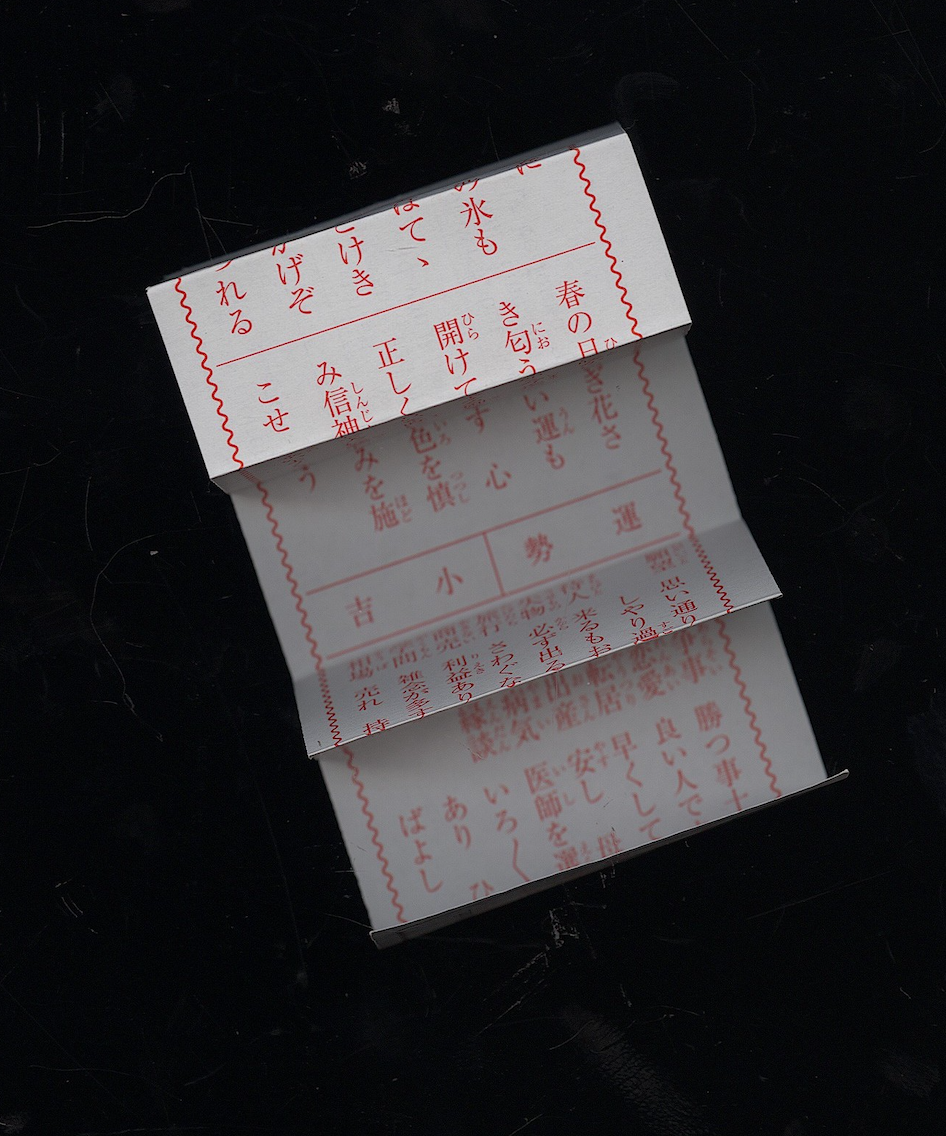 に
み氷も
はて、
けき
げぞ
れる
春の日き花さ
き匂うい運も
開けてす 心
正しく色を慎
み信神みを施
こせう
運勢
小吉
願望 思い通り
しやり過
待人 来るもお
失物 必ず出る
旅行 さわぐな
商売 利益あり
学問 雑念が多す
相場 売れ 持
事 勝つ事十
恋愛 良い人で
転居 早くして
産 安し 母
病気 医師を選
縁談 いろ〱 ひ
あり
ばよし